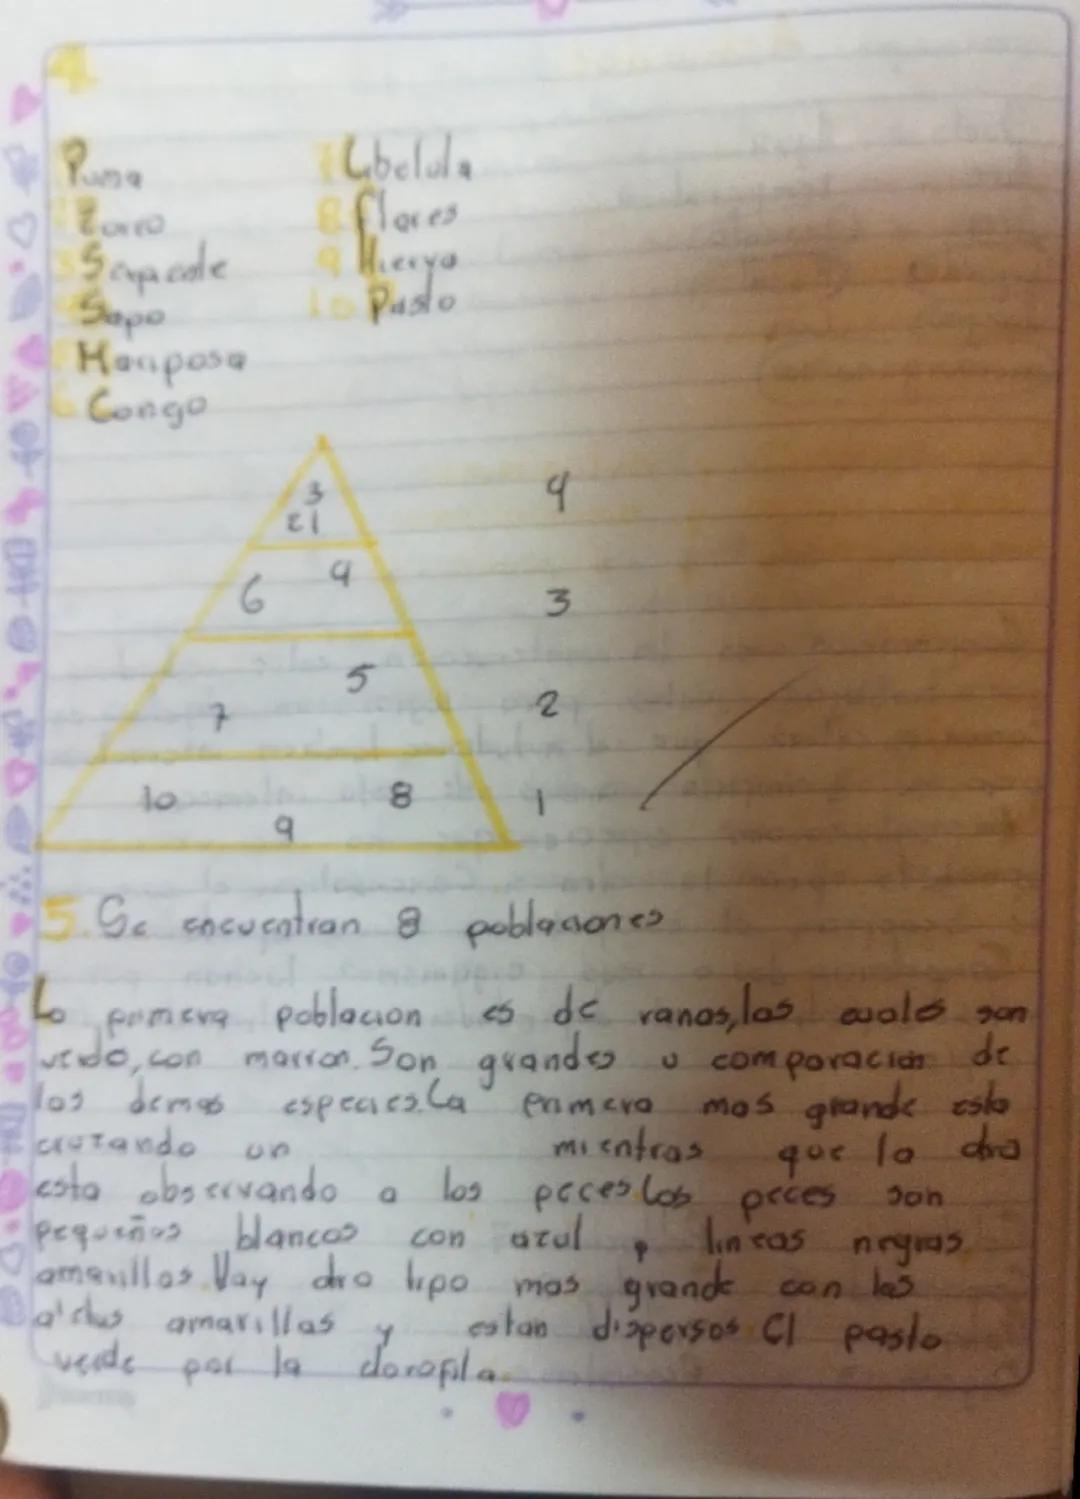 4
Puma
Zorro
3 Sapacole
Sapo
Mariposa
6 Congo
7 Libelula
8 flores
9 Hierva
10 Pasto
3
21
4
6
4
3
5
7
2
10
8
9
1
5. Se encuentran 8 poblaciones
La primera poblacion es de ranas, las cuales son
verde, con marron. Son grandes a comparacion de
los demas especies. La primera mas grande esta
cruzando un mientras que la otra
esta observando a los peces. Los peces son
pequeños blancos con azul y lineas negras
amarillas. Hay otro tipo mas grande con las
aletas amarillas y estan dispersos El pasto
verde por la clorofila.